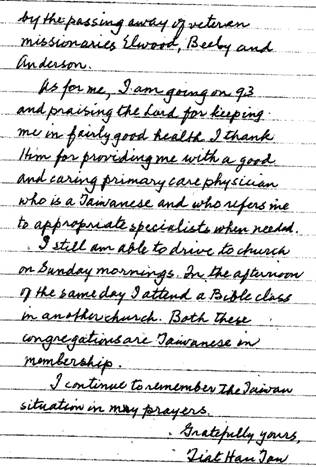 by the passing away of veteran
missionaries Elwood, Beeby and
Anderson.
As for me, I am going on 93
and praising the Lord for keeping
me in fairly good health. I thank
Him for providing me with a good
and caring primary care physician
who is a Taiwanese and who refers me
to appropriate specialists when needed.
I still am able to drive to church
on Sunday mornings. In the afternoon
of the same day I attend a Bible class
in another church. Both these
congregations are Taiwanese in
membership.
I continue to remember the Taiwan
situation in my prayers.
Gratefully yours,
Tiat Han Tan